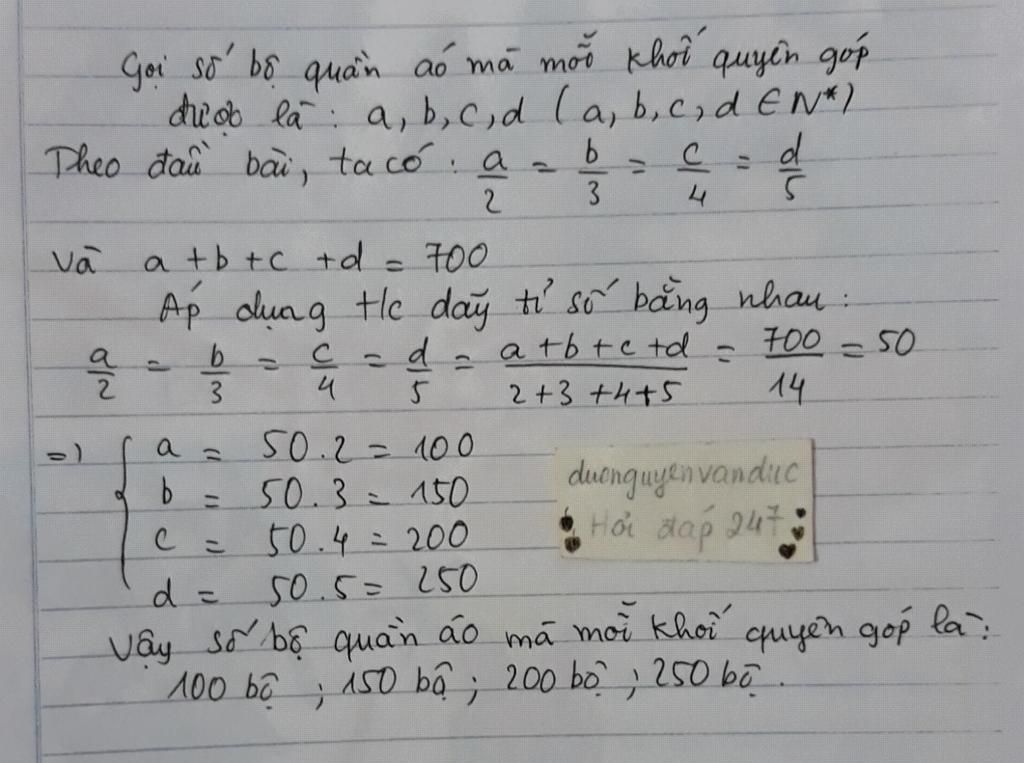 Gọi số bộ quần áo mà mỗi khối quyên góp
được là: a, b, c, d (a, b, c, d ∈ N*)
Theo đầu bài, ta có: a/2 = b/3 = c/4 = d/5
Và a + b + c + d = 700
Áp dụng t/c dãy tỉ số bằng nhau:
a/2 = b/3 = c/4 = d/5 = (a + b + c + d)/(2 + 3 + 4 + 5) = 700/14 = 50
=> { a = 50.2 = 100
b = 50.3 = 150
c = 50.4 = 200
d = 50.5 = 250
duonguyenvanduc
Hỏi đáp 247
Vậy số bộ quần áo mà mỗi khối quyên góp là:
100 bộ ; 150 bộ ; 200 bộ ; 250 bộ.